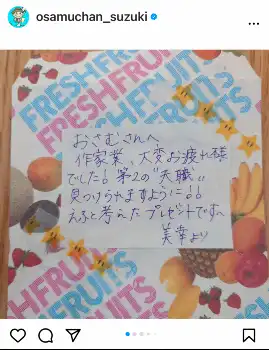 osamuchan_suzuki
FRESH FRUITS
FRESH FRUITS
おさむさんへ
作家業、大変お疲れ様
でした! 第2の"天職"
見つけられますように!!
えると考えたプレゼントです〜
美幸より
FRESH FRUITS
FRUITS